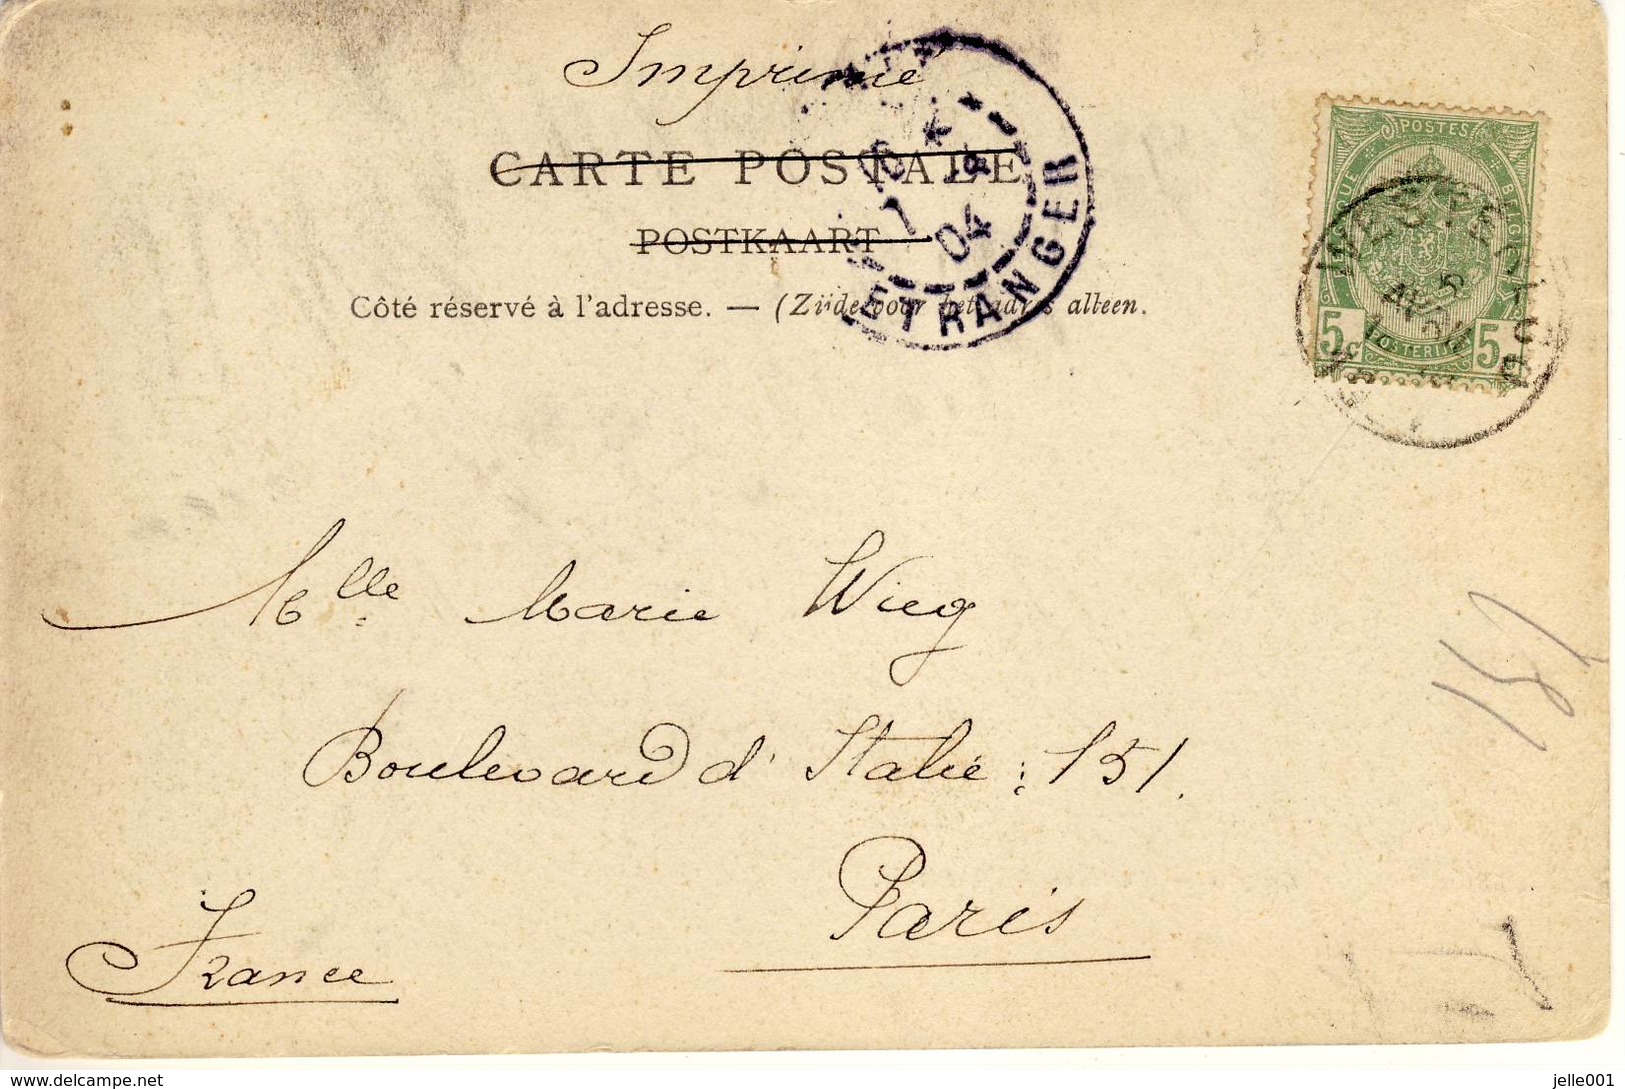 Imprimé
CARTE POSTALE
POSTKAART
Côté réservé à l'adresse. — (Zijde voor het adres alleen.
ETRANGER
04
POSTES
BELGIQUE
5c 5c
Mlle Marie Wieg
Boulevard d'Italie : 151.
Paris
France
151
delcampe.net
jelle001